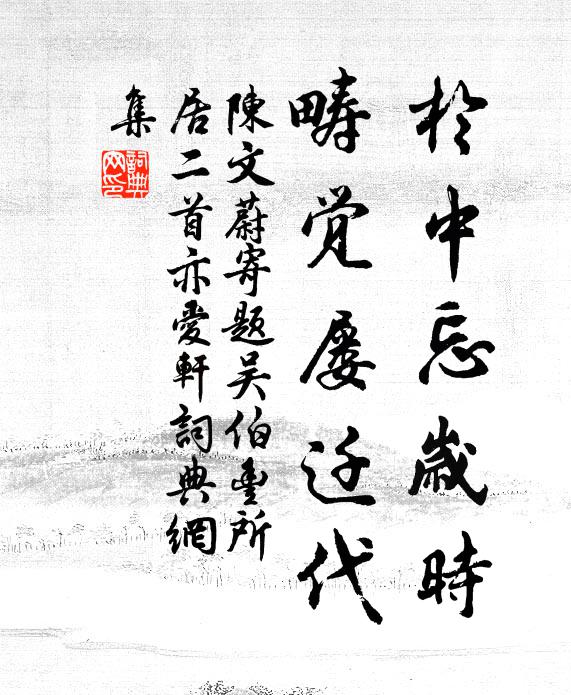 於中忘歲時
畴觉屡迁代
陳文蔚寄題吳伯豐所
居二首亦愛軒詞典網
集
詞典
网印